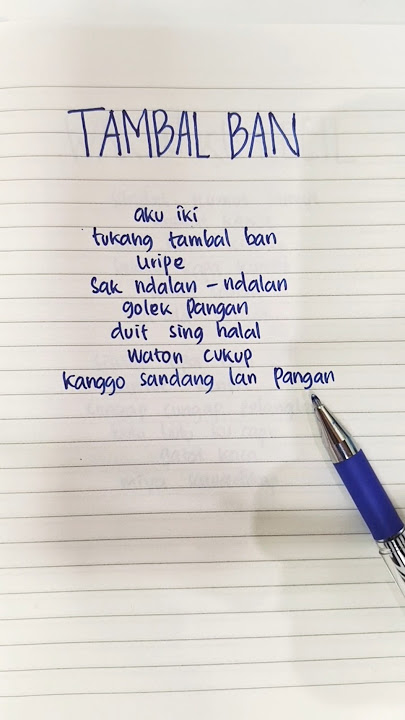 TAMBAL BAN
aku iki
tukang tambal ban
uripe
sak ndalan - ndalan
golek pangan
duit sing halal
waton cukup
kanggo sandang lan pangan